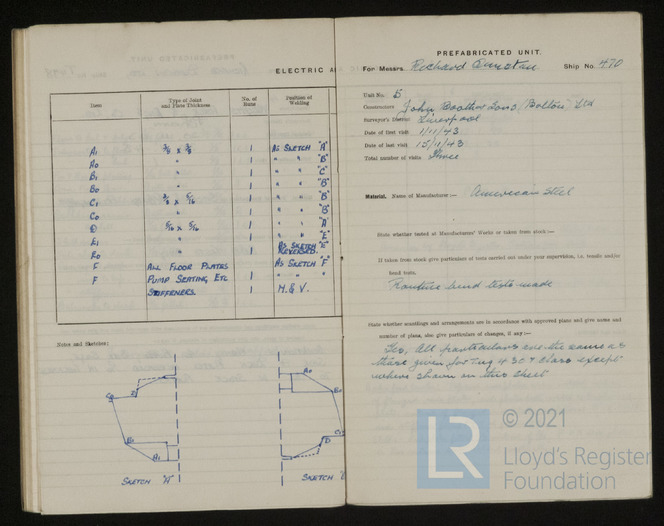 ELECTRIC A
Item Type of Joint and Plate Thickness No. of Runs Position of Welding
A1 3/8 x 3/8 1 AS SKETCH "A"
A0 " 1 " " "B"
B1 " 1 " " "C"
B0 " 1 " " "B"
C1 3/8 x 5/16 1 " " "B"
C0 " 1 " " "B"
D 5/16 x 5/16 1 " " "A"
E1 " 1 " " "E"
E0 " 1 AS SKETCH "E" REVERSED.
F ALL FLOOR PLATES AS SKETCH "F"
F PUMP SEATING ETC 1 " " "
STIFFENERS 1 H. & V.
Notes and Sketches:
B1
A1
SKETCH "A"
A0
D
SKETCH
PREFABRICATED UNIT.
For Messrs. Richard Dunston Ship No. 470
Unit No. 5
Constructors John Booth & Sons (Bolton) Ltd
Surveyor's District Liverpool
Date of first visit 1/11/43
Date of last visit 15/11/43
Total number of visits Three
Material. Name of Manufacturer:— American Steel
State whether tested at Manufacturers' Works or taken from stock:—
If taken from stock give particulars of tests carried out under your supervision, i.e. tensile and/or
bend tests.
Routine bend tests made
State whether scantlings and arrangements are in accordance with approved plans and give name and
number of plans, also give particulars of changes, if any:—
Yes, All particulars are the same as
those given for Tug 43 C T class except
where shown on this sheet
© 2021
LR
Lloyd's Register
Foundation